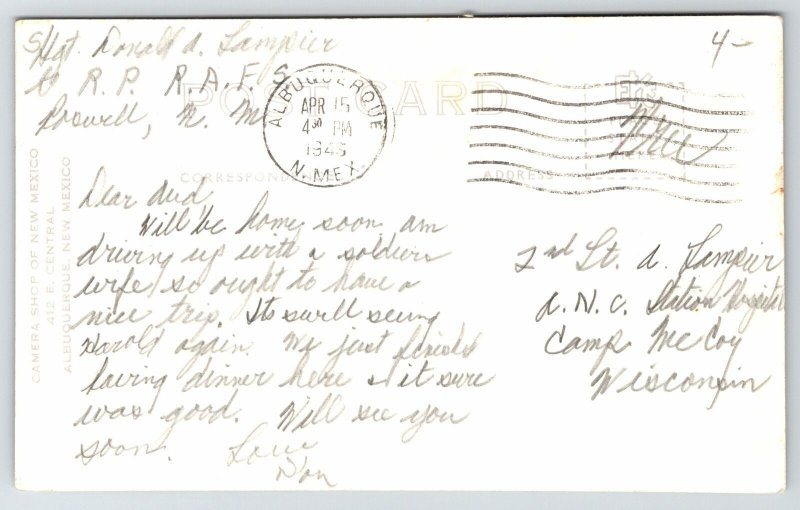 Sgt. Donald A. Lampier
R.P. R.A.F.S.
Roswell, N. M.
4-
POST CARD
ALBUQUERQUE
APR 15
4 30 PM
N. MEX.
Free
CORRESPONDENCE
ADDRESS
CAMERA SHOP OF NEW MEXICO
412 E. CENTRAL
ALBUQUERQUE, NEW MEXICO
Dear
Will be home soon, am
driving up with a soldiers
wife so ought to have a
nice trip. Its swell seeing
Harold again. We just finished
having dinner here & it sure
was good. Will see you
soon. Love
Don
2nd Lt. A. Lampier
A.N.C. Station Hospital
Camp McCoy
Wisconsin